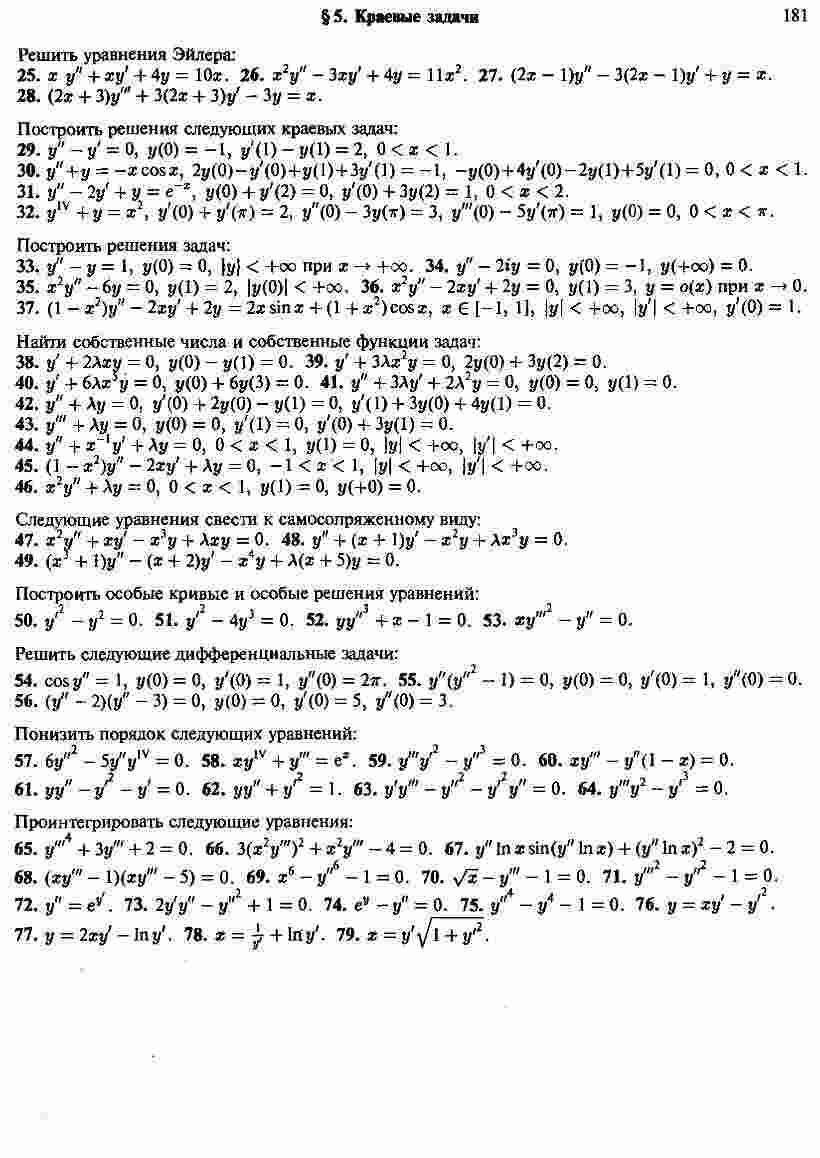 § 5. Краевые задачи 181
Решить уравнения Эйлера:
25. x y″ + xy′ + 4y = 10x. 26. x²y″ − 3xy′ + 4y = 11x². 27. (2x − 1)y″ − 3(2x − 1)y′ + y = x.
28. (2x + 3)y‴ + 3(2x + 3)y′ − 3y = x.
Построить решения следующих краевых задач:
29. y″ − y′ = 0, y(0) = −1, y′(1) − y(1) = 2, 0 < x < 1.
30. y″+y = −x cos x, 2y(0)−y′(0)+y(1)+3y′(1) = −1, −y(0)+4y′(0)−2y(1)+5y′(1) = 0, 0 < x < 1.
31. y″ − 2y′ + y = e⁻ˣ, y(0) + y′(2) = 0, y′(0) + 3y(2) = 1, 0 < x < 2.
32. yᴵⱽ + y = x², y′(0) + y′(π) = 2, y″(0) − 3y(π) = 3, y‴(0) − 5y′(π) = 1, y(0) = 0, 0 < x < π.
Построить решения задач:
33. y″ − y = 1, y(0) = 0, |y| < +∞ при x → +∞. 34. y″ − 2iy = 0, y(0) = −1, y(+∞) = 0.
35. x²y″ − 6y = 0, y(1) = 2, |y(0)| < +∞. 36. x²y″ − 2xy′ + 2y = 0, y(1) = 3, y = o(x) при x → 0.
37. (1 − x²)y″ − 2xy′ + 2y = 2x sin x + (1 + x²) cos x, x ∈ [−1, 1], |y| < +∞, |y′| < +∞, y′(0) = 1.
Найти собственные числа и собственные функции задач:
38. y′ + 2λxy = 0, y(0) − y(1) = 0. 39. y′ + 3λx²y = 0, 2y(0) + 3y(2) = 0.
40. y′ + 6λx⁵y = 0, y(0) + 6y(3) = 0. 41. y″ + 3λy′ + 2λ²y = 0, y(0) = 0, y(1) = 0.
42. y″ + λy = 0, y′(0) + 2y(0) − y(1) = 0, y′(1) + 3y(0) + 4y(1) = 0.
43. y‴ + λy = 0, y(0) = 0, y′(1) = 0, y′(0) + 3y(1) = 0.
44. y″ + x⁻¹y′ + λy = 0, 0 < x < 1, y(1) = 0, |y| < +∞, |y′| < +∞.
45. (1 − x²)y″ − 2xy′ + λy = 0, −1 < x < 1, |y| < +∞, |y′| < +∞.
46. x²y″ + λy = 0, 0 < x < 1, y(1) = 0, y(+0) = 0.
Следующие уравнения свести к самосопряженному виду:
47. x²y″ + xy′ − x³y + λxy = 0. 48. y″ + (x + 1)y′ − x²y + λx³y = 0.
49. (x³ + 1)y″ − (x + 2)y′ − x⁴y + λ(x + 5)y = 0.
Построить особые кривые и особые решения уравнений:
50. y′² − y² = 0. 51. y′² − 4y³ = 0. 52. yy″³ + x − 1 = 0. 53. xy‴² − y″ = 0.
Решить следующие дифференциальные задачи:
54. cos y″ = 1, y(0) = 0, y′(0) = 1, y″(0) = 2π. 55. y″(y″² − 1) = 0, y(0) = 0, y′(0) = 1, y″(0) = 0.
56. (y″ − 2)(y″ − 3) = 0, y(0) = 0, y′(0) = 5, y″(0) = 3.
Понизить порядок следующих уравнений:
57. 6y″² − 5y″yᴵⱽ = 0. 58. xyᴵⱽ + y‴ = eˣ. 59. y‴y′² − y″³ = 0. 60. xy‴ − y″(1 − x) = 0.
61. yy″ − y′² − y′ = 0. 62. yy″ + y′² = 1. 63. y′y‴ − y″² − y′²y″ = 0. 64. y‴y² − y′³ = 0.
Проинтегрировать следующие уравнения:
65. y‴⁴ + 3y‴ + 2 = 0. 66. 3(x²y‴)² + x²y‴ − 4 = 0. 67. y″ ln x sin(y″ ln x) + (y″ ln x)² − 2 = 0.
68. (xy‴ − 1)(xy‴ − 5) = 0. 69. x⁶ − y″⁶ − 1 = 0. 70. √x − y‴ − 1 = 0. 71. y‴² − y″² − 1 = 0.
72. y″ = eʸ′. 73. 2y′y″ − y″² + 1 = 0. 74. eʸ − y″ = 0. 75. y″⁴ − y⁴ − 1 = 0. 76. y = xy′ − y′².
77. y = 2xy′ − ln y′. 78. x = 1/y′ + ln y′. 79. x = y′√(1 + y′²).